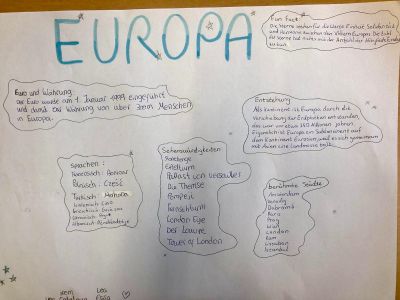 EUROPA
Fun Fact:
Die Sterne stehen für die Werte Einheit, Solidarität
und Harmonie zwischen den Völkern Europas. Die Zahl
der Sterne hat nichts mit der Anzahl der Mitgliedsländer
zu tun.
Euro und Währung:
Der Euro wurde am 1. Januar 1999 eingeführt
und ist die Währung von über 300 Menschen
in Europa.
Entstehung
Als Kontinent ist Europa durch die
Verschiebung der Erdplatten entstanden,
das war vor etwa 150 Millionen Jahren.
Eigentlich ist Europa ein Subkontinent auf
dem Kontinent Eurasien, weil es sich gemeinsam
mit Asien eine Landmasse teilt.
Sprachen:
Französisch: Bonjour
Polnisch: Cześć
Türkisch: Merhaba
Italienisch: Ciao
Sehenswürdigkeiten
Stonehenge
Eiffelturm
Palast von Versailles
Die Themse
Pompeii
Fernsehturm
London Eye
Der Louvre
Tower of London
berühmte Städte
Amsterdam
Venedig
Dubrovnik
Paris
Prag
Wien
London
Rom
Lissabon
Istanbul
Lea